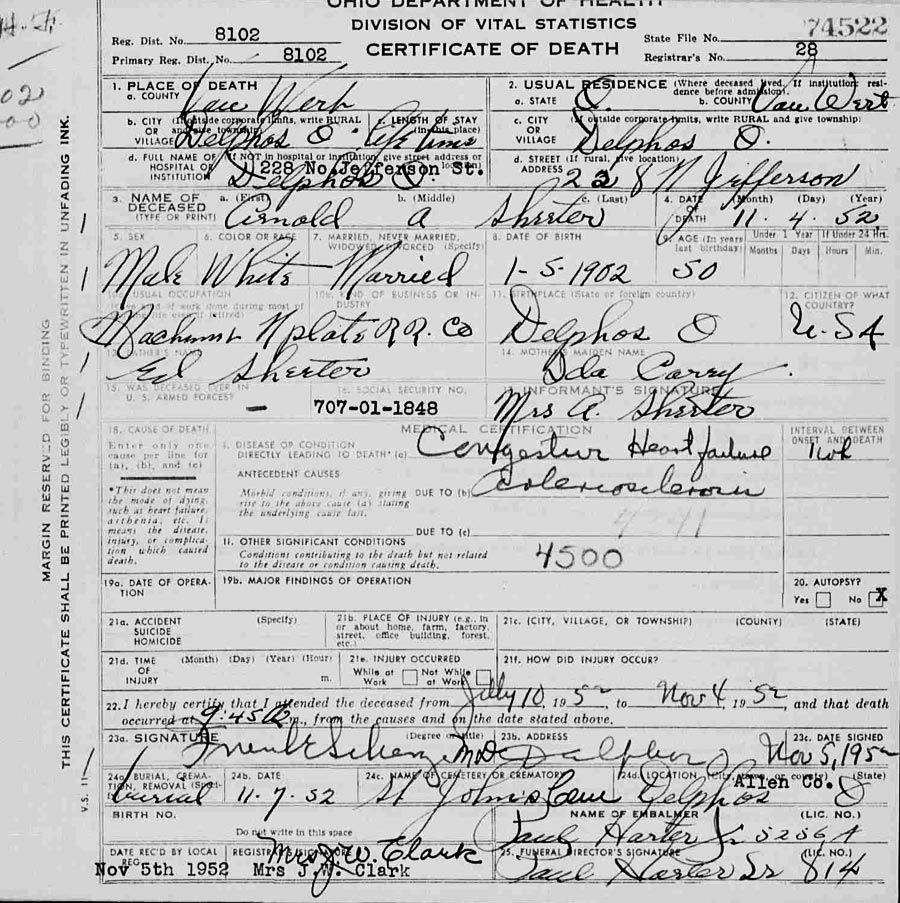 OHIO DEPARTMENT OF HEALTH
DIVISION OF VITAL STATISTICS
CERTIFICATE OF DEATH
Reg. Dist. No. 8102
Primary Reg. Dist. No. 8102
State File No. 74522
Registrar's No. 28
MARGIN RESERVED FOR BINDING
THIS CERTIFICATE SHALL BE PRINTED LEGIBLY OR TYPEWRITTEN IN UNFADING INK.
V.S. 11
1. PLACE OF DEATH
a. COUNTY Van Wert
2. USUAL RESIDENCE (Where deceased lived. If institution: residence before admission).
a. STATE O. b. COUNTY Van Wert
b. CITY OR VILLAGE (If outside corporate limits, write RURAL and give township) Delphos O.
c. LENGTH OF STAY (in this place) Life time
c. CITY OR VILLAGE (If outside corporate limits, write RURAL and give township) Delphos O.
d. FULL NAME OF HOSPITAL OR INSTITUTION (If NOT in hospital or institution, give street address or location) 228 No. Jefferson St. Delphos O.
d. STREET ADDRESS (If rural, give location) 228 N Jefferson
3. NAME OF DECEASED (TYPE OR PRINT)
a. (First) Arnold b. (Middle) a c. (Last) Sheeter
4. DATE OF DEATH (Month) (Day) (Year) 11. 4. 52
5. SEX Male
6. COLOR OR RACE White
7. MARRIED, NEVER MARRIED, WIDOWED, DIVORCED (Specify) Married
8. DATE OF BIRTH 1-5-1902
9. AGE (In years last birthday) 50
Under 1 Year Months Days
If Under 24 Hrs. Hours Min.
10a. USUAL OCCUPATION (Give kind of work done during most of life even if retired) Machinist
10b. KIND OF BUSINESS OR INDUSTRY N plate R R. Co
11. BIRTHPLACE (State or foreign country) Delphos O
12. CITIZEN OF WHAT COUNTRY? U.SA
13. FATHER'S NAME Ed Sheeter
14. MOTHER'S MAIDEN NAME Ida Carey
15. WAS DECEASED EVER IN U. S. ARMED FORCES? —
16. SOCIAL SECURITY NO. 707-01-1848
17. INFORMANT'S SIGNATURE Mrs A. Sheeter
MEDICAL CERTIFICATION
18. CAUSE OF DEATH
Enter only one cause per line for (a), (b), and (c)
*This does not mean the mode of dying, such as heart failure, asthenia, etc. It means the disease, injury, or complication which caused death.
I. DISEASE OR CONDITION DIRECTLY LEADING TO DEATH* (a) Congestive Heart failure
INTERVAL BETWEEN ONSET AND DEATH
ANTECEDENT CAUSES
Morbid conditions, if any, giving rise to the above cause (a) stating the underlying cause last.
DUE TO (b)
DUE TO (c)
II. OTHER SIGNIFICANT CONDITIONS
Conditions contributing to the death but not related to the disease or condition causing death.
4500
19a. DATE OF OPERATION
19b. MAJOR FINDINGS OF OPERATION
20. AUTOPSY?
Yes No X
21a. ACCIDENT SUICIDE HOMICIDE (Specify)
21b. PLACE OF INJURY (e.g., in or about home, farm, factory, street, office building, forest, etc.)
21c. (CITY, VILLAGE, OR TOWNSHIP) (COUNTY) (STATE)
21d. TIME OF INJURY (Month) (Day) (Year) (Hour) m.
21e. INJURY OCCURRED
While at Work Not While at Work
21f. HOW DID INJURY OCCUR?
22. I hereby certify that I attended the deceased from July 10, 1952, to Nov 4, 1952, and that death
occurred at 9:45 m., from the causes and on the date stated above.
23a. SIGNATURE (Degree or title) M.D.
23b. ADDRESS Delphos
23c. DATE SIGNED Nov 5, 1952
24a. BURIAL, CREMATION, REMOVAL (Specify) burial
24b. DATE 11-7-52
24c. NAME OF CEMETERY OR CREMATORY St John's Cem
24d. LOCATION (City, town, or county) (State) Allen Co. Delphos O
BIRTH NO.
Do not write in this space
NAME OF EMBALMER (LIC. NO.)
Paul Harter Jr 5256A
DATE REC'D BY LOCAL REG. Nov 5th 1952
REGISTRAR'S SIGNATURE Mrs J.W. Clark
Mrs J.W. Clark
25. FUNERAL DIRECTOR'S SIGNATURE (LIC. NO.)
Paul Harter Sr 814